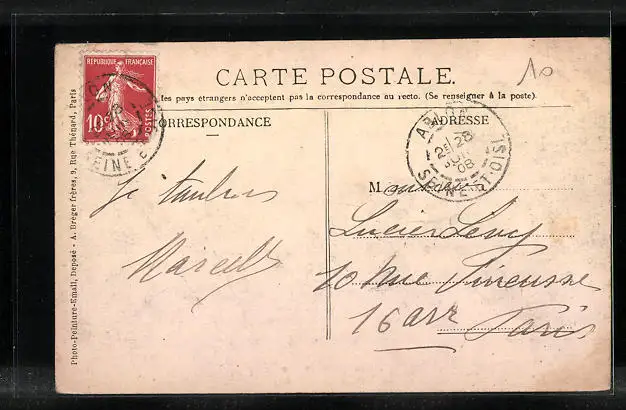 RÉPUBLIQUE FRANÇAISE
10c
POSTES
CARTE POSTALE.
les pays étrangers n'acceptent pas la correspondance au recto. (Se renseigner à la poste).
ORRESPONDANCE
ADRESSE
28
JUIN
08
SEINE-ET-OISE
SEINE
Je
Marcelle
M
Lucien Lévy
10 Rue
16 arr Paris
10
Photo-Peinture-Email, Déposé - A. Breger frères, 9, Rue Thénard, Paris